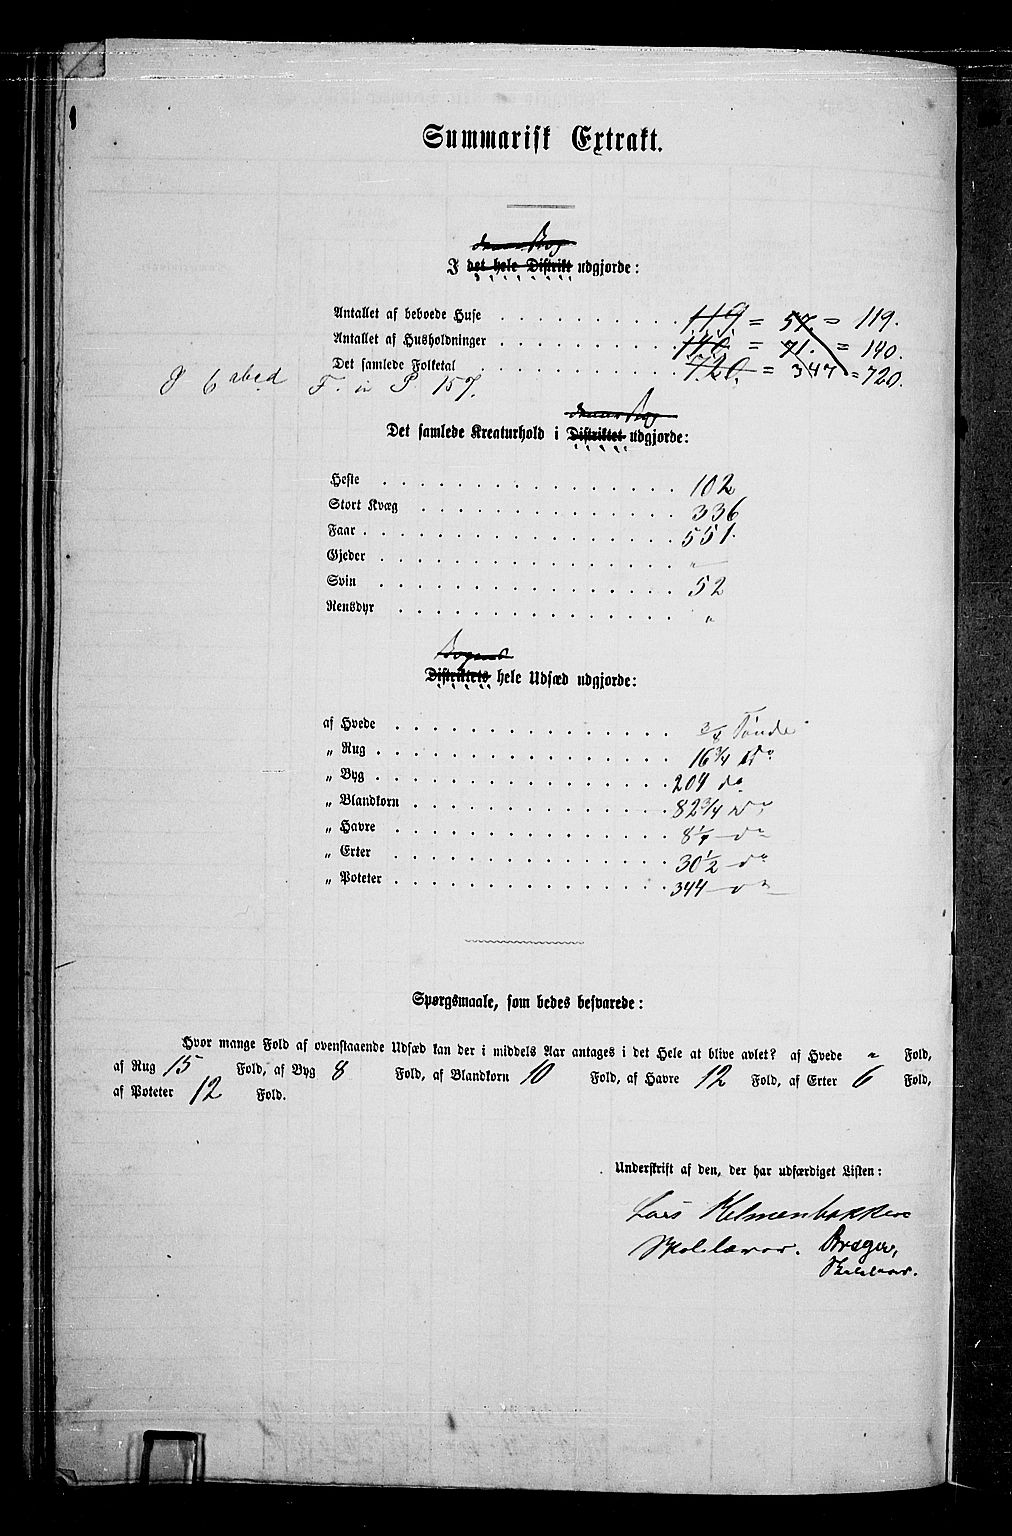 Summarisk Extrakt.
denne Bog
I det hele Distrikt udgjorde:
Antallet af beboede Huse . . . . . . . . . 119 = 57. = 119.
Antallet af Husholdninger . . . . . . . . . 140. = 71. = 140.
Det samlede Folketal . . . . . . . . . 720. = 347 = 720.
P 157.
denne Bog
Det samlede Kreaturhold i Distriktet udgjorde:
Heste . . . . . . . . . 102
Stort Kvæg . . . . . . . . . 336
Faar . . . . . . . . . 551.
Gjeder . . . . . . . . . "
Svin . . . . . . . . . 52
Rensdyr . . . . . . . . . "
Bogens
Distriktets hele Udsæd udgjorde:
af Hvede . . . . . . . . . 3/4 Tønde
„ Rug . . . . . . . . . 16 3/4 do
„ Byg . . . . . . . . . 204 do
„ Blandkorn . . . . . . . . . 82 3/4 do
„ Havre . . . . . . . . . 8 1/4 do
„ Erter . . . . . . . . . 30 1/2 do
„ Poteter . . . . . . . . . 344 do
Spørgsmaale, som bedes besvarede:
Hvor mange Fold af ovenstaaende Udsæd kan der i middels Aar antages i det Hele at blive avlet? af Hvede " Fold,
af Rug 15 Fold, af Byg 8 Fold, af Blandkorn 10 Fold, af Havre 12 Fold, af Erter 6 Fold,
af Poteter 12 Fold.
Underskrift af den, der har udfærdiget Listen:
Lars
Skolelærer.